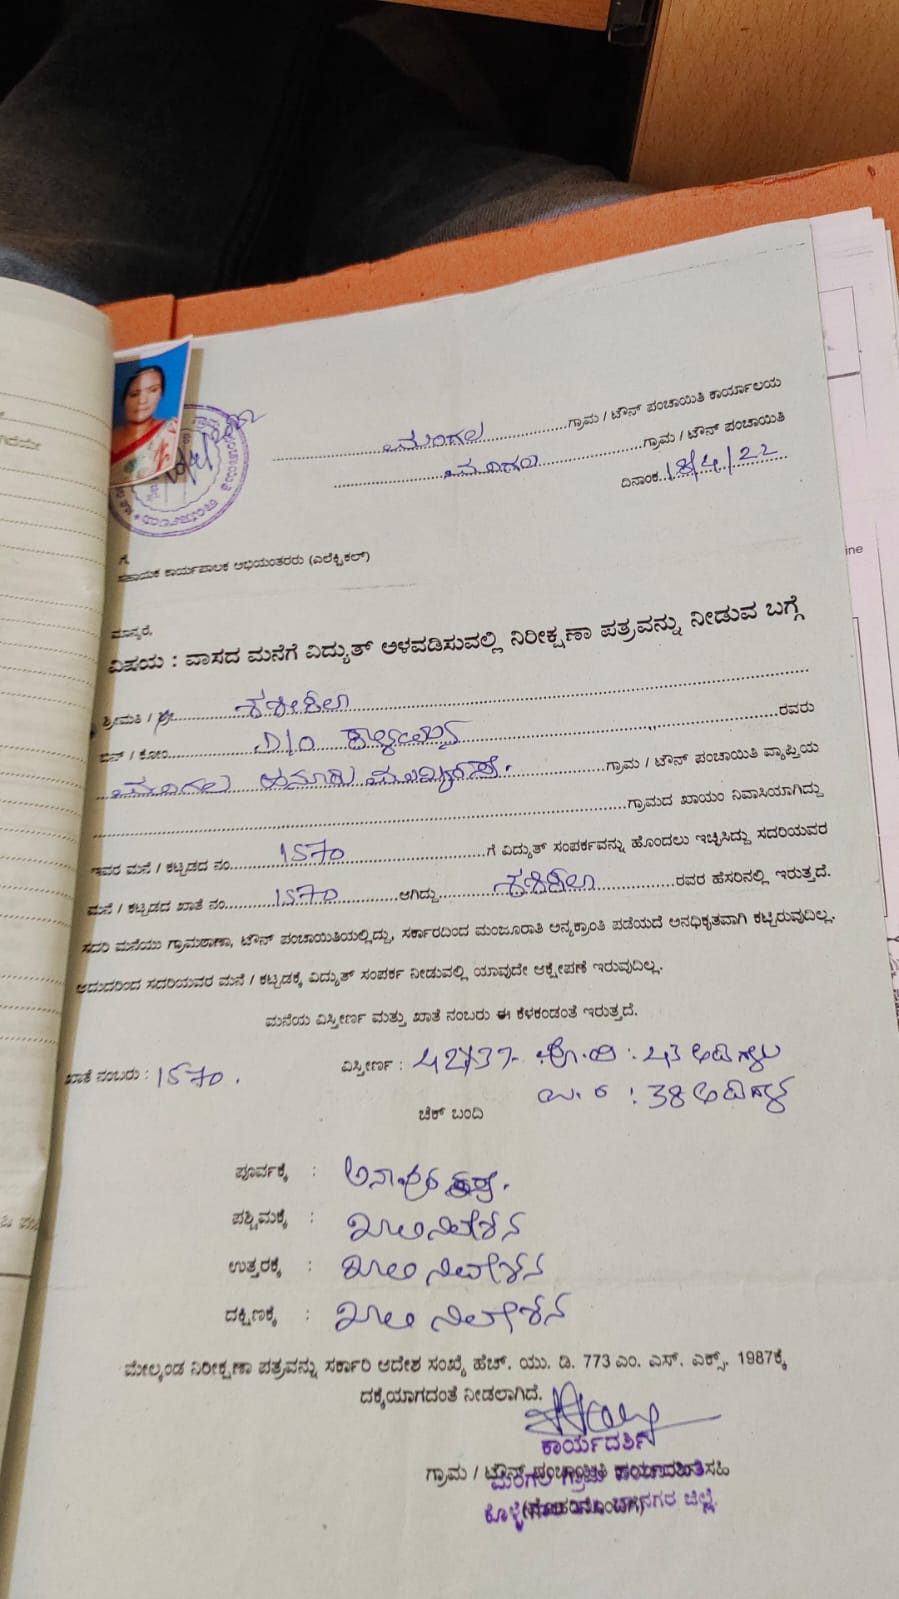 ಗ್ರಾಮ / ಟೌನ್ ಪಂಚಾಯಿತಿ ಕಾರ್ಯಾಲಯ
ಗ್ರಾಮ / ಟೌನ್ ಪಂಚಾಯಿತಿ
ದಿನಾಂಕ 18/4/22
ಗೆ,
ಸಹಾಯಕ ಕಾರ್ಯಪಾಲಕ ಅಭಿಯಂತರರು (ಎಲೆಕ್ಟ್ರಿಕಲ್)
ಮಾನ್ಯರೆ,
ವಿಷಯ : ವಾಸದ ಮನೆಗೆ ವಿದ್ಯುತ್ ಅಳವಡಿಸುವಲ್ಲಿ ನಿರೀಕ್ಷಣಾ ಪತ್ರವನ್ನು ನೀಡುವ ಬಗ್ಗೆ
ಶ್ರೀಮತಿ / ಶ್ರೀ ಶಶೀಕಲಾ
ಬಿನ್ / ಕೋಂ D/o ರವರು
ಗ್ರಾಮ / ಟೌನ್ ಪಂಚಾಯಿತಿ ವ್ಯಾಪ್ತಿಯ
ಗ್ರಾಮದ ಖಾಯಂ ನಿವಾಸಿಯಾಗಿದ್ದು
ಇವರ ಮನೆ / ಕಟ್ಟಡದ ನಂ 1570 ಗೆ ವಿದ್ಯುತ್ ಸಂಪರ್ಕವನ್ನು ಹೊಂದಲು ಇಚ್ಛಿಸಿದ್ದು ಸದರಿಯವರ
ಮನೆ / ಕಟ್ಟಡದ ಖಾತೆ ನಂ 1570 ಆಗಿದ್ದು ಶಶಿಕಲಾ ರವರ ಹೆಸರಿನಲ್ಲಿ ಇರುತ್ತದೆ.
ಸದರಿ ಮನೆಯು ಗ್ರಾಮಠಾಣಾ, ಟೌನ್ ಪಂಚಾಯಿತಿಯಲ್ಲಿದ್ದು, ಸರ್ಕಾರದಿಂದ ಮಂಜೂರಾತಿ ಅನ್ಯಕ್ರಾಂತಿ ಪಡೆಯದೆ ಅನಧಿಕೃತವಾಗಿ ಕಟ್ಟಿರುವುದಿಲ್ಲ.
ಆದುದರಿಂದ ಸದರಿಯವರ ಮನೆ / ಕಟ್ಟಡಕ್ಕೆ ವಿದ್ಯುತ್ ಸಂಪರ್ಕ ನೀಡುವಲ್ಲಿ ಯಾವುದೇ ಆಕ್ಷೇಪಣೆ ಇರುವುದಿಲ್ಲ.
ಮನೆಯ ವಿಸ್ತೀರ್ಣ ಮತ್ತು ಖಾತೆ ನಂಬರು ಈ ಕೆಳಕಂಡಂತೆ ಇರುತ್ತದೆ.
ಖಾತೆ ನಂಬರು : 1570. ವಿಸ್ತೀರ್ಣ : 42x37 : 43 ಅಡಿಗಳು
: 38 ಅಡಿಗಳು
ಚೆಕ್ ಬಂದಿ
ಪೂರ್ವಕ್ಕೆ :
ಪಶ್ಚಿಮಕ್ಕೆ : ಖಾಲಿ ನಿವೇಶನ
ಉತ್ತರಕ್ಕೆ : ಖಾಲಿ ನಿವೇಶನ
ದಕ್ಷಿಣಕ್ಕೆ : ಖಾಲಿ ನಿವೇಶನ
ಮೇಲ್ಕಂಡ ನಿರೀಕ್ಷಣಾ ಪತ್ರವನ್ನು ಸರ್ಕಾರಿ ಆದೇಶ ಸಂಖ್ಯೆ ಹೆಚ್. ಯು. ಡಿ. 773 ಎಂ. ಎಸ್. ಎಕ್ಸ್. 1987ಕ್ಕೆ
ದಕ್ಕೆಯಾಗದಂತೆ ನೀಡಲಾಗಿದೆ.
ಕಾರ್ಯದರ್ಶಿ
ಗ್ರಾಮ / ಟೌನ್ ಪಂಚಾಯಿತಿ ಸಹಿ